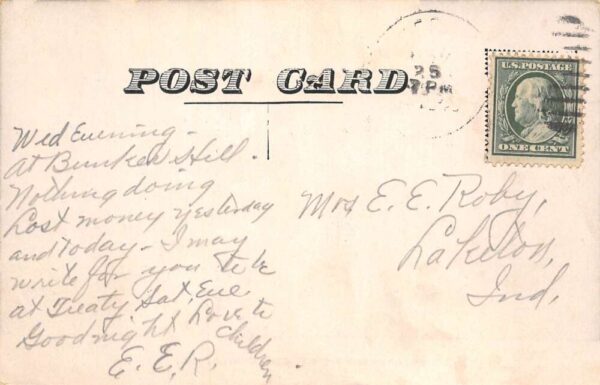 POST CARD
25
7 PM
U.S. POSTAGE
ONE CENT
Wed Evening -
At Bunker Hill.
Nothing doing
Lost money yesterday
and today - I may
write for you to be
at Treaty, Sat, Eve
Goodnight Love to
children
E. E. R.
Mrs E. E. Roby,
Laketon,
Ind.